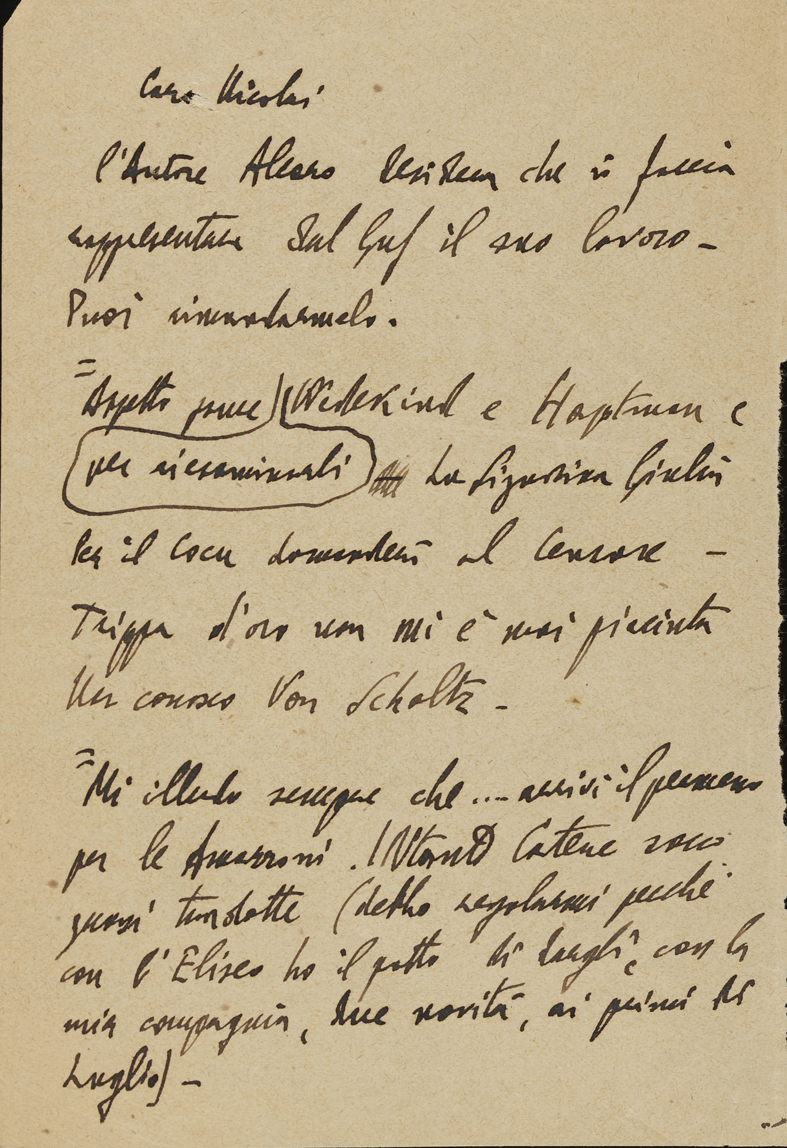 Caro Nicolai
l'Autore Alvaro desidera che si faccia
rappresentare dal Guf il suo lavoro –
Puoi rimandarmelo.
= Aspetto pure) (Wedekind e Haptman e
per riesaminarli La Signorina Giulia
Per il Cocu domanderei al Censore –
Trippa d'oro non mi è mai piaciuta
Non conosco Von Scholtz –
= Mi illudo sempre che .... arrivi il permesso
per le Amazzoni. Intanto Catene sono
quasi tradotte (debbo regolarmi perché
con l'Eliseo ho il patto di dargli, con la
mia compagnia, due novità, ai primi di
Luglio) –